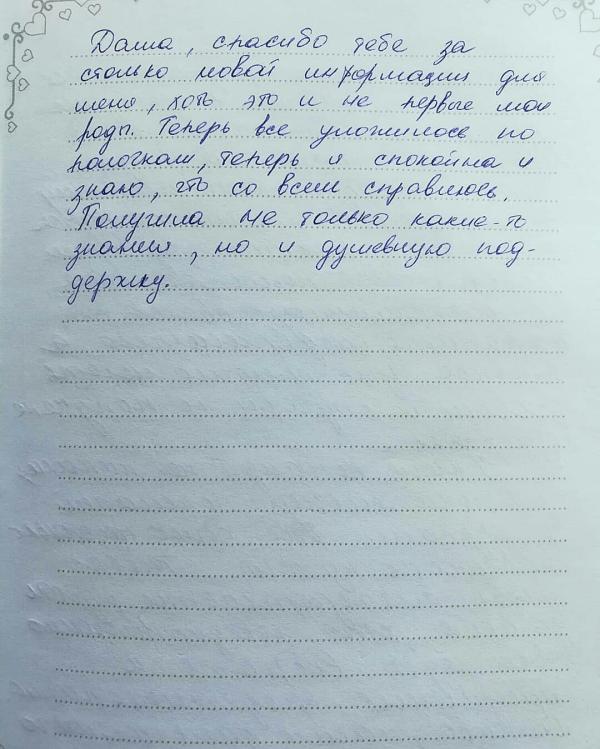 Даша, спасибо тебе за
столько новой информации для
меня, хоть это и не первые мои
роды. Теперь все уложилось по
полочкам, теперь я спокойна и
знаю, что со всем справлюсь.
Получила не только какие-то
знания, но и душевную под-
держку.